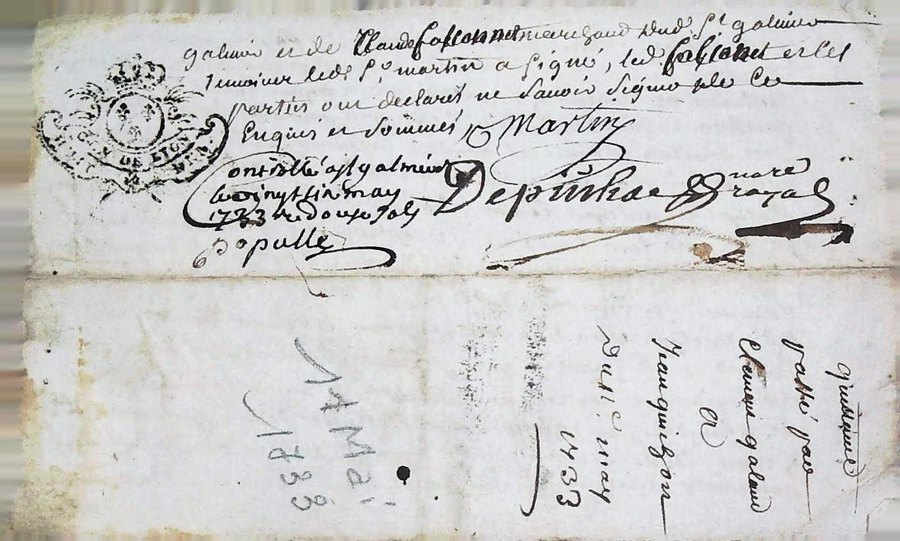 galmier et de Claude fassonnet marchand dud St galmier
temoins led Sr martin a signé, led fassonet et les
parties ont declarés ne savoir signé de ce
Enquis et sommés Martin
Controllé a st galmier
le vingt six may
1733 re douze sols
Populle
no.re royal
GEN DE LION
quittance
passé par
Clemens galand
A
Jean quizon
Du 11e may
1733
11 Mai
1733